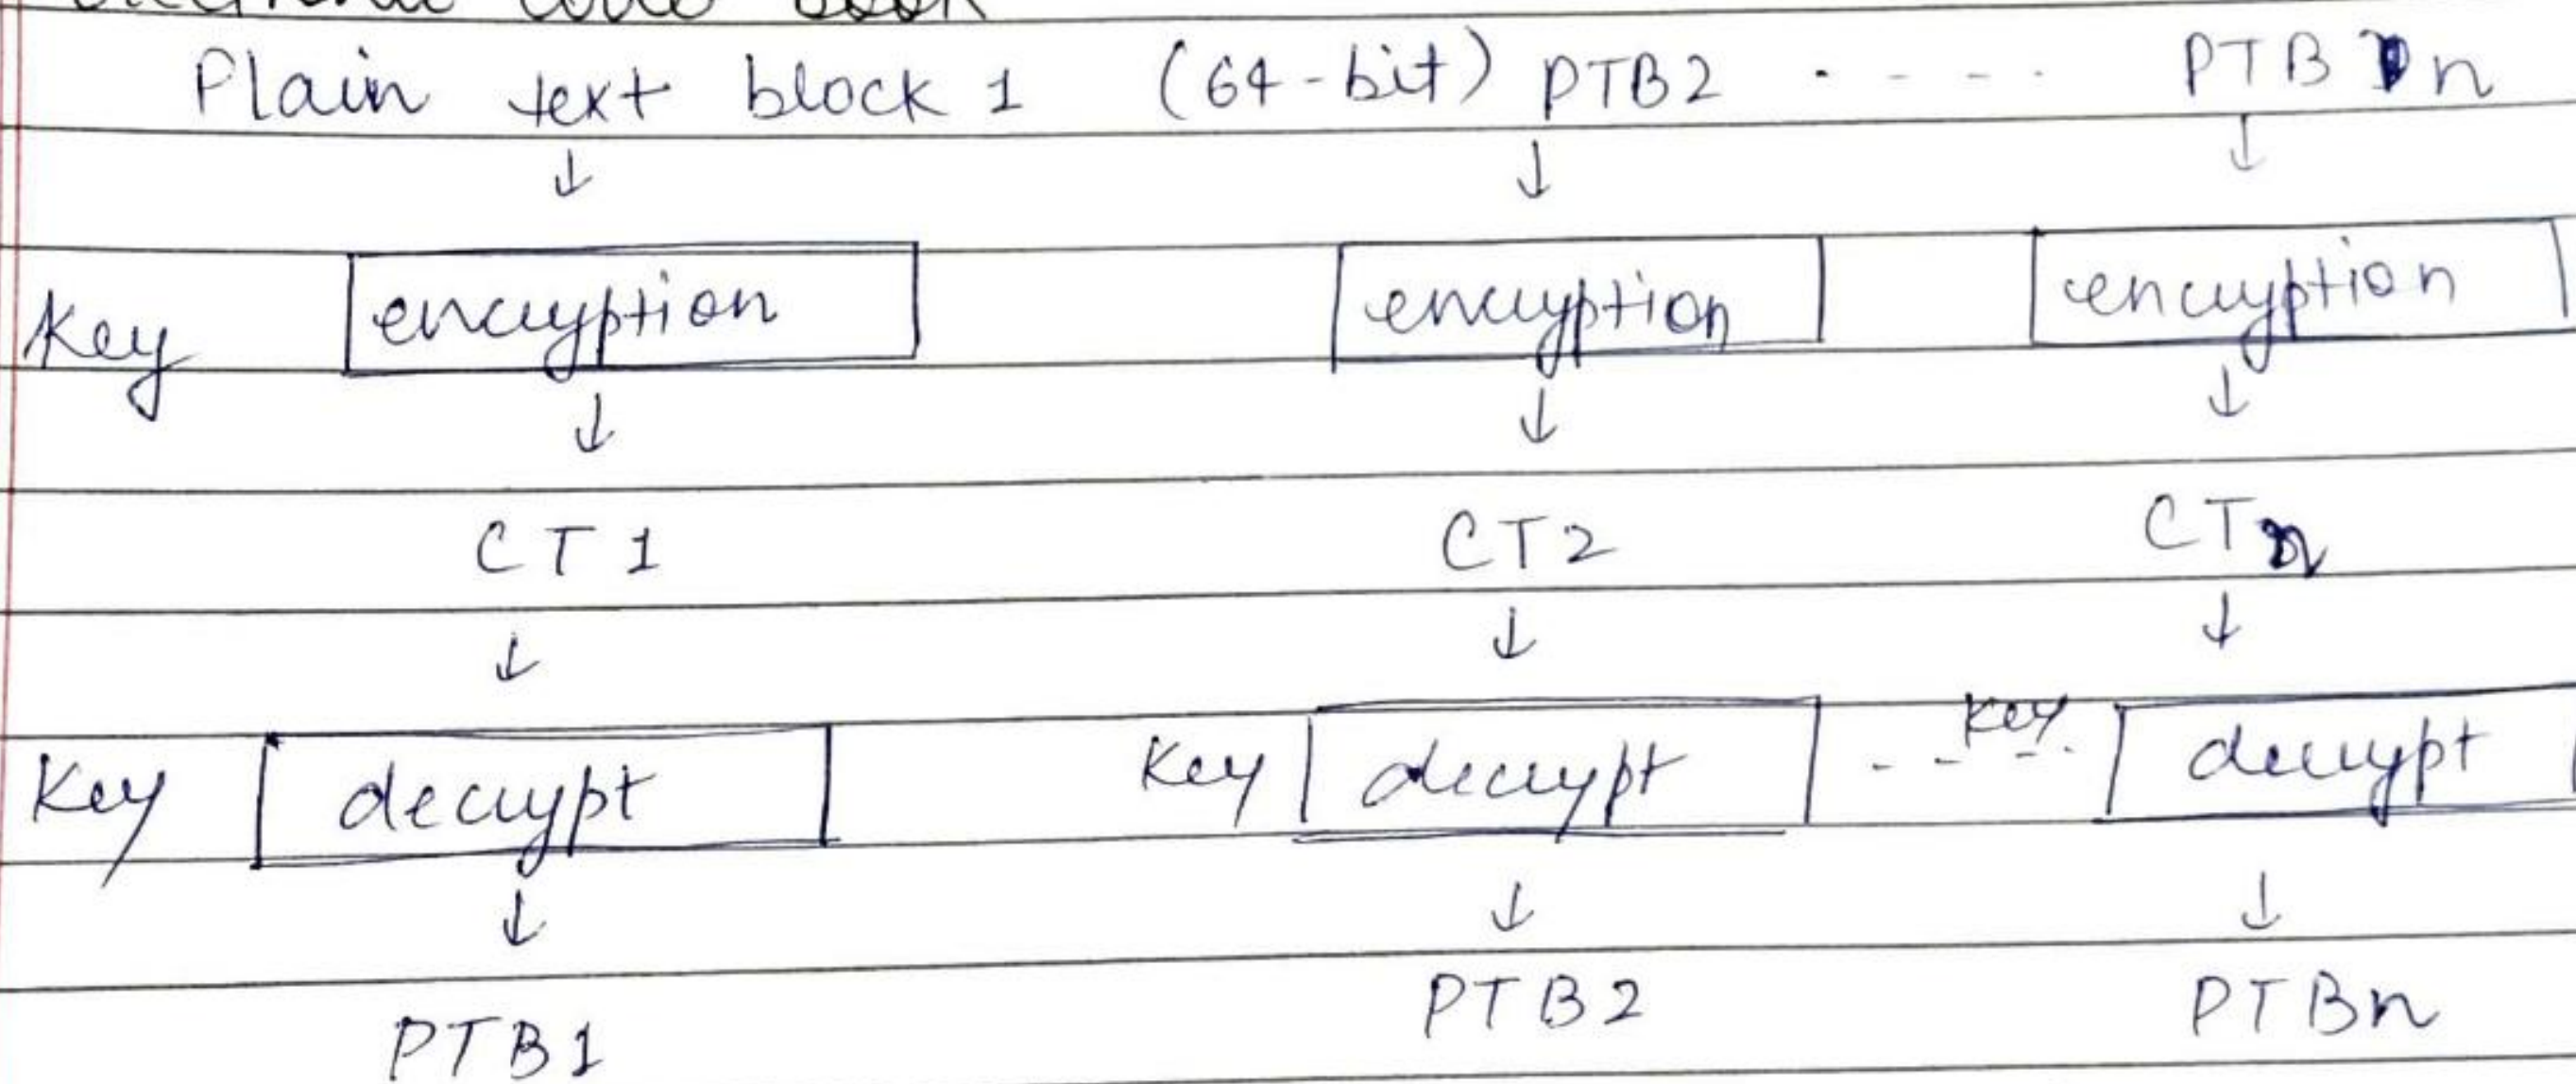 code book
Plain text block 1 (64-bit) PTB2 . - - - . PTB n
↓ ↓ ↓
Key encryption encryption encryption
↓ ↓ ↓
CT1 CT2 CTn
↓ ↓ ↓
Key decrypt Key decrypt - - Key - . decrypt
↓ ↓ ↓
PTB1 PTB2 PTBn